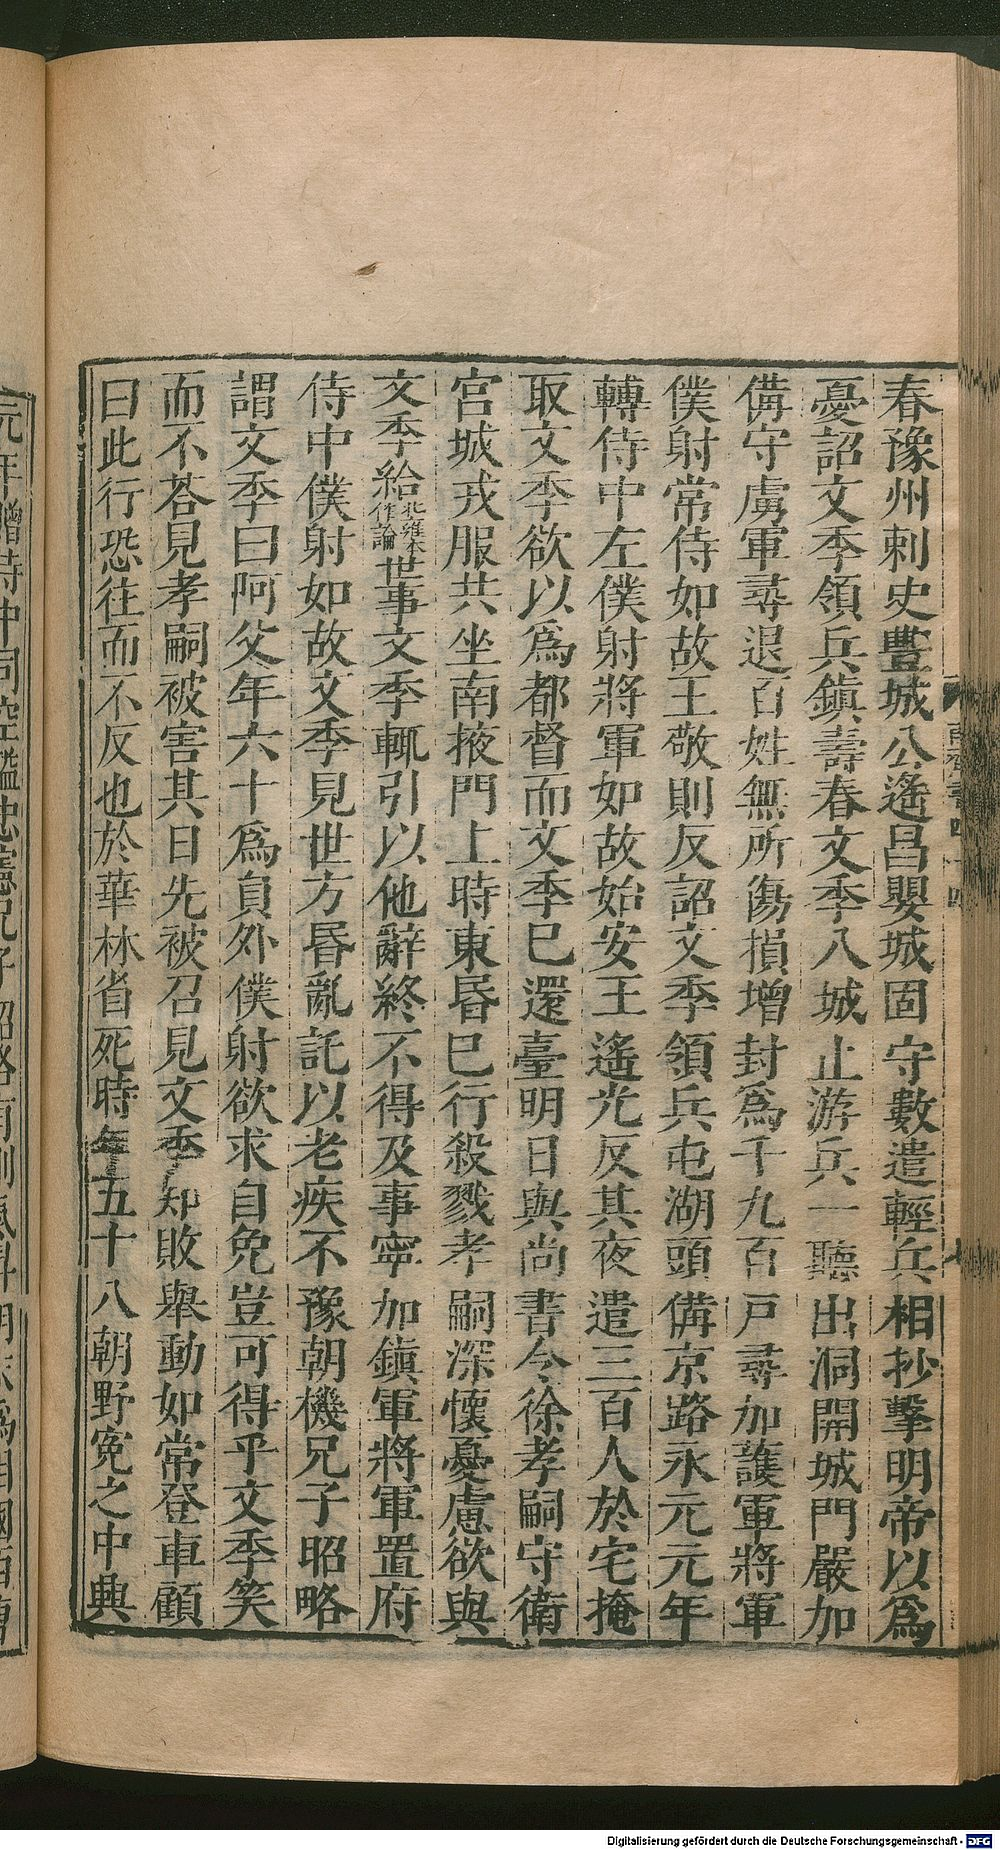 春豫州刺史豐城公遙昌嬰城固守數遣輕兵相抄擊明帝以爲
憂詔文季領兵鎮壽春文季入城止游兵一聽出洞開城門嚴加
備守虜軍尋退百姓無所傷損增封爲千九百戸尋加護軍將軍
僕射常侍如故王敬則反詔文季領兵屯湖頭備京路永元元年
轉侍中左僕射將軍如故始安王遙光反其夜遣三百人於宅掩
取文季欲以爲都督而文季已還臺明日與尚書令徐孝嗣守衛
宮城戎服共坐南掖門上時東昏已行殺戮孝嗣深懷憂慮欲與
文季給北雍本作論世事文季輒引以他辭終不得及事寧加鎮軍將軍置府
侍中僕射如故文季見世方昏亂託以老疾不豫朝機兄子昭略
謂文季曰阿父年六十爲員外僕射欲求自免豈可得乎文季笑
而不荅見孝嗣被害其日先被召見文季知敗舉動如常登車顧
曰此行恐往而不反也於華林省死時年五十八朝野寃之中興
元年贈侍中司空諡忠憲兄子昭略有剛氣昇明末爲相國西曹
Digitalisierung gefördert durch die Deutsche Forschungsgemeinschaft - DFG